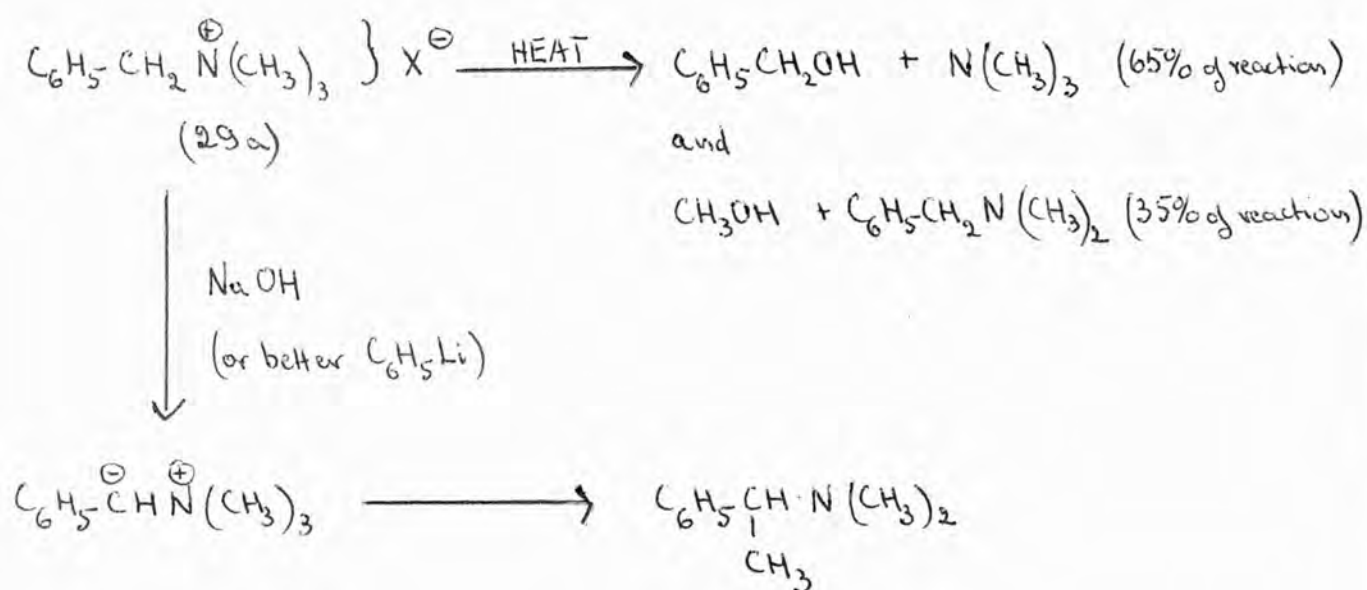 C₆H₅-CH₂ N⊕(CH₃)₃ } X⊖ HEAT → C₆H₅CH₂OH + N(CH₃)₃ (65% of reaction)
(29a)
and
CH₃OH + C₆H₅-CH₂ N(CH₃)₂ (35% of reaction)
NaOH
(or better C₆H₅Li)
C₆H₅-C⊖H N⊕(CH₃)₃ → C₆H₅-CH·N(CH₃)₂
CH₃